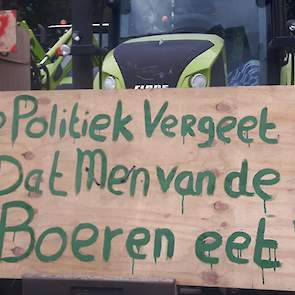 CLAAS
Politiek Vergeet
Dat Men van de
Boeren eet!